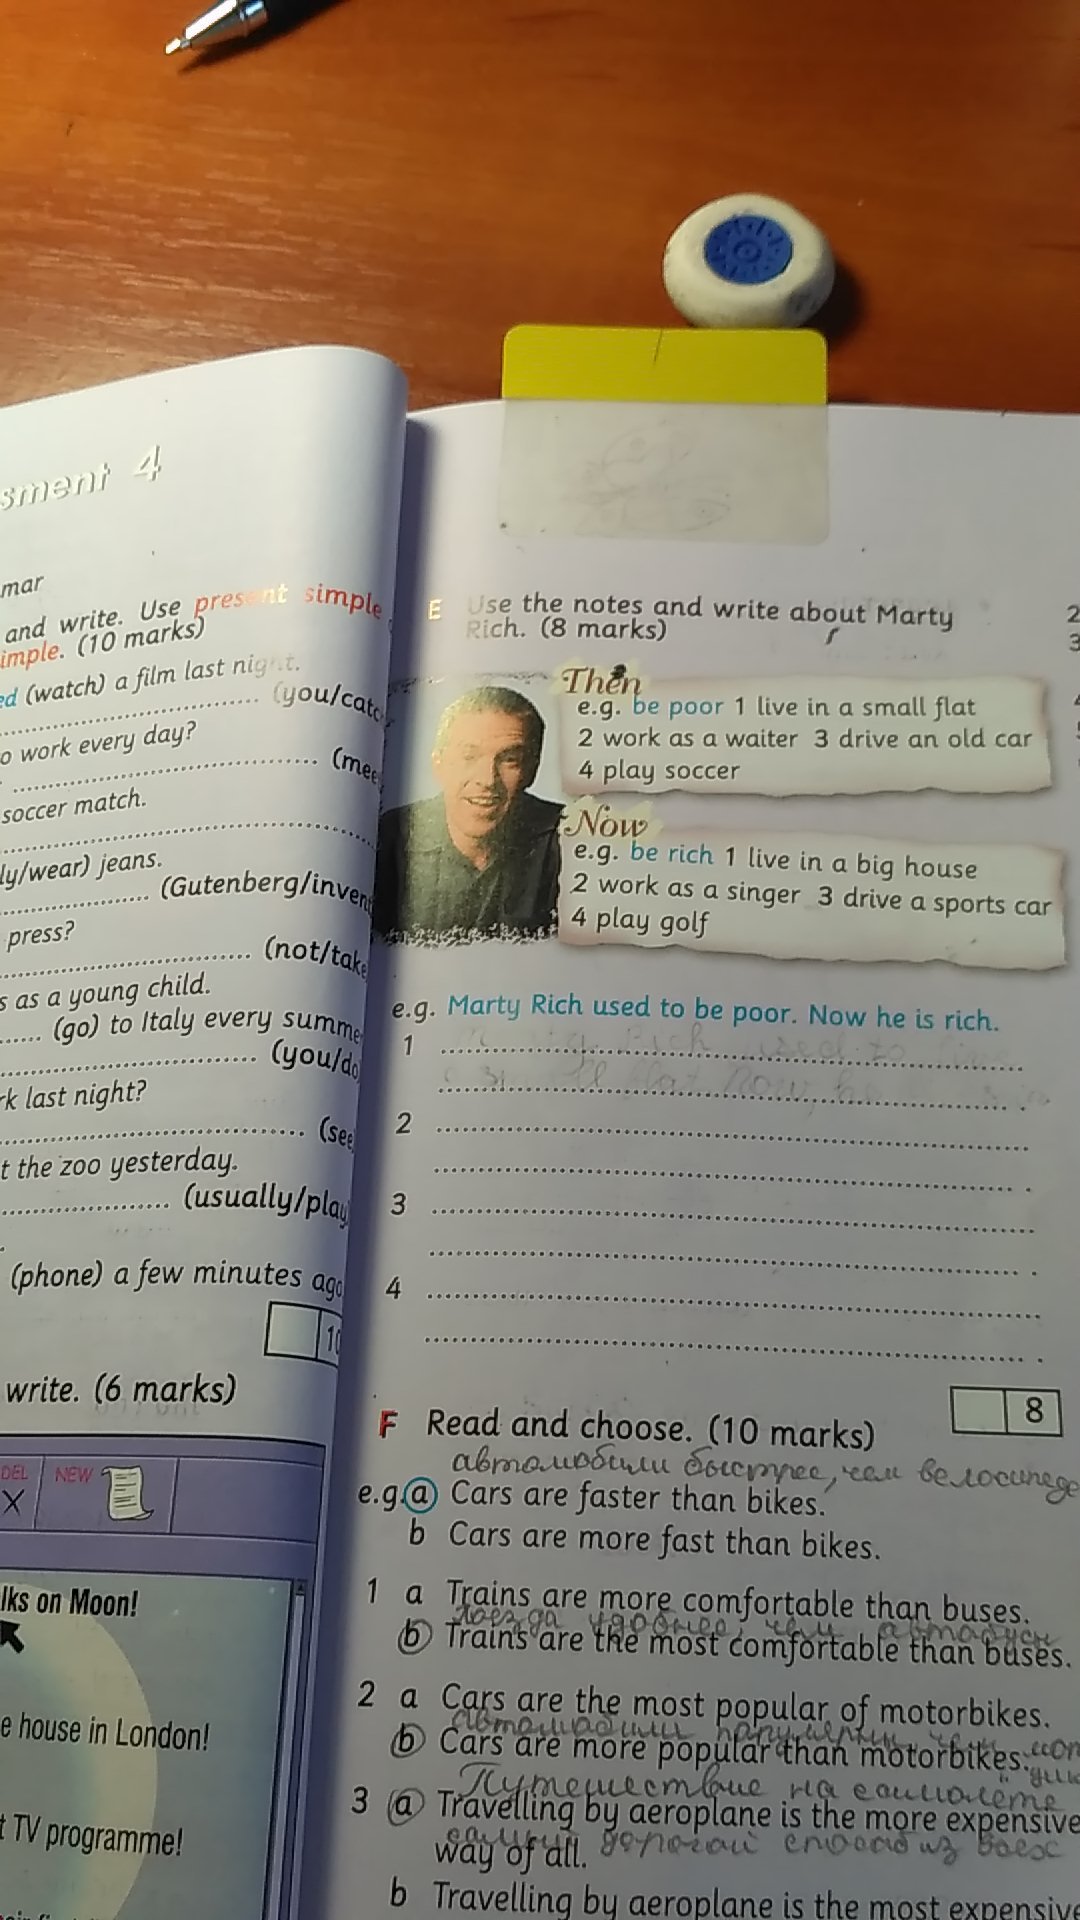 sment 4
mar
and write. Use present simple
imple. (10 marks)
ed (watch) a film last night.
(you/catc
o work every day?
(mee
soccer match.
ly/wear) jeans.
(Gutenberg/inven
press?
(not/take
s as a young child.
(go) to Italy every summe
(you/do
rk last night?
(see
t the zoo yesterday.
(usually/play
(phone) a few minutes ago
10
write. (6 marks)
DEL
X
NEW
lks on Moon!
e house in London!
t TV programme!
E Use the notes and write about Marty
Rich. (8 marks)
Then
e.g. be poor 1 live in a small flat
2 work as a waiter 3 drive an old car
4 play soccer
Now
e.g. be rich 1 live in a big house
2 work as a singer 3 drive a sports car
4 play golf
e.g. Marty Rich used to be poor. Now he is rich.
1 Rich used to
small flat Now he
2
3
4
8
F Read and choose. (10 marks)
автомобили быстрее, чем велосипеде
e.g. a Cars are faster than bikes.
b Cars are more fast than bikes.
1 a Trains are more comfortable than buses.
поезда удобнее, чем автобусы
b Trains are the most comfortable than buses.
2 a Cars are the most popular of motorbikes.
b Cars are more popular than motorbikes.
Путешествие на самолёте
3 a Travelling by aeroplane is the more expensive
самый дорогой способ из всех
way of all.
b Travelling by aeroplane is the most expensive
2
3